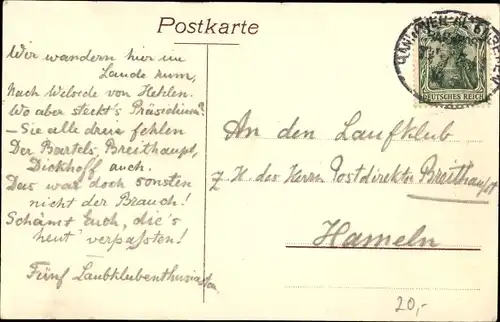 Postkarte
Wir wandern hier im
Lande rum,
Nach Welsede von Hehlen.
Wo aber steckt's Präsidium?
– Sie alle drei fehlen
Der Bartels, Breithaupt,
Dickhoff auch.
Das war doch sonsten
nicht der Brauch!
Schämt Euch, die's
heut' verpassten!
Fünf Laubklubenthusiasten
DEUTSCHES REICH
An den Laufklub
z. H. des Herrn Postdirektor Breithaupt
Hameln
20,-